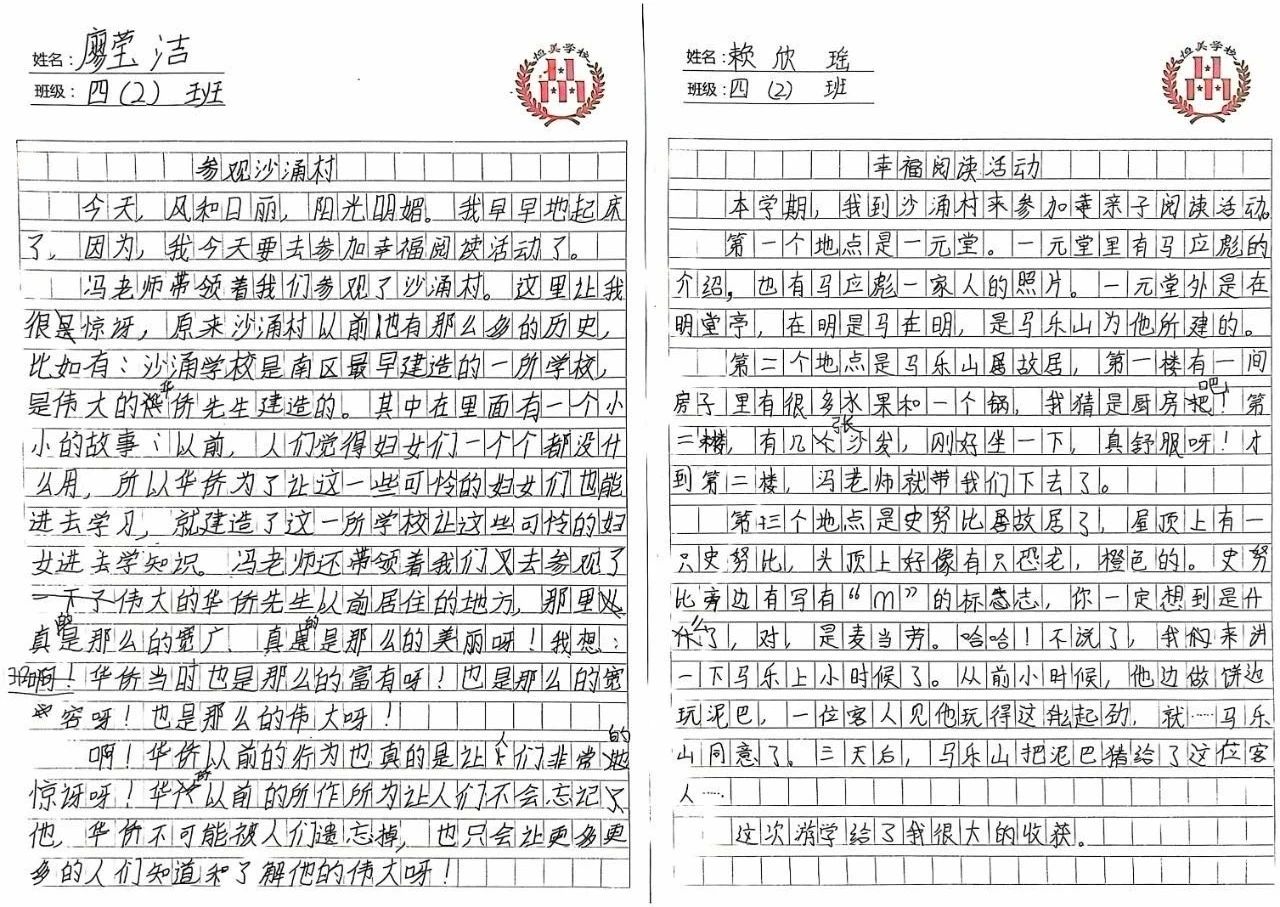 姓名：廖莹洁
班级：四（2）班
恒美学校
参观沙涌村
今天，风和日丽，阳光明媚。我早早地起床
了，因为，我今天要去参加幸福阅读活动了。
冯老师带领着我们参观了沙涌村。这里让我
很惊讶，原来沙涌村以前也有那么多的历史，
比如有：沙涌学校是南区最早建造的一所学校，
是伟大的华侨先生建造的。其中在里面有一个小
小的故事：以前，人们觉得妇女们一个个都没什
么用，所以华侨为了让这一些可怜的妇女们也能
进去学习，就建造了这一所学校让这些可怜的妇
女进去学知识。冯老师还带领着我们又去参观了
一下了伟大的华侨先生以前居住的地方，那里
真的是那么的宽广，真的是那么的美丽呀！我想：
啊！华侨当时也是那么的富有呀！也是那么的宽
容呀！也是那么的伟大呀！
啊！华侨以前的行为也真的是让人们非常的
惊讶呀！华侨以前的所作所为让人们不会忘记了
他，华侨不可能被人们遗忘掉，也只会让更多更
多的人们知道和了解他的伟大呀！
姓名：赖欣瑶
班级：四（2）班
恒美学校
幸福阅读活动
本学期，我到沙涌村来参加亲子阅读活动。
第一个地点是一元堂。一元堂里有马应彪的
介绍，也有马应彪一家人的照片。一元堂外是在
明堂亭，在明是马在明，是马乐山为他所建的。
第二个地点是马乐山故居，第一楼有一间
房子里有很多水果和一个锅，我猜是厨房吧！第
二楼，有几张沙发，刚好坐一下，真舒服呀！才
到第二楼，冯老师就带我们下去了。
第三个地点是史努比故居了，屋顶上有一
只史努比，头顶上好像有只恐龙，橙色的。史努
比旁边有写有“m”的标志，你一定想到是什
么了，对，是麦当劳。哈哈！不说了，我们来讲
一下马乐上小时候了。从前小时候，他边做饼边
玩泥巴，一位客人见他玩得这能起劲，就……马乐
山同意了。三天后，马乐山把泥巴猪给了这位客
人……
这次游学给了我很大的收获。